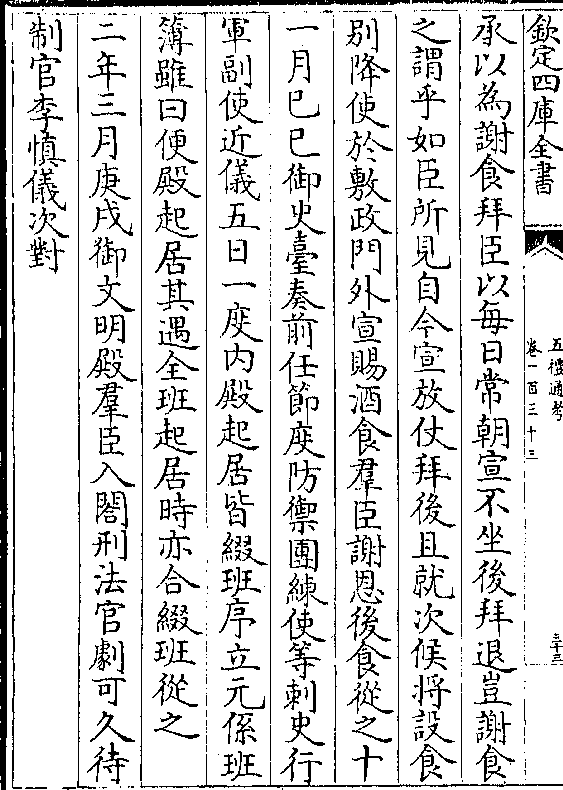 欽定四庫全書
五禮通考
卷一百三十三
承以為謝食拜臣以每日常朝宣不坐後拜退豈謝食
之謂乎如臣所見自今宣放仗拜後且就次候將設食
別降使於敷政門外宣賜酒食羣臣謝恩後食從之十
一月己巳御史臺奏前任節度防禦團練使等刺史行
軍副使近儀五日一度内殿起居皆綴班序立元係班
簿雖曰便殿起居其遇全班起居時亦合綴班從之
二年三月庚戌御文明殿羣臣入閤刑法官劇可久待
制官李慎儀次對